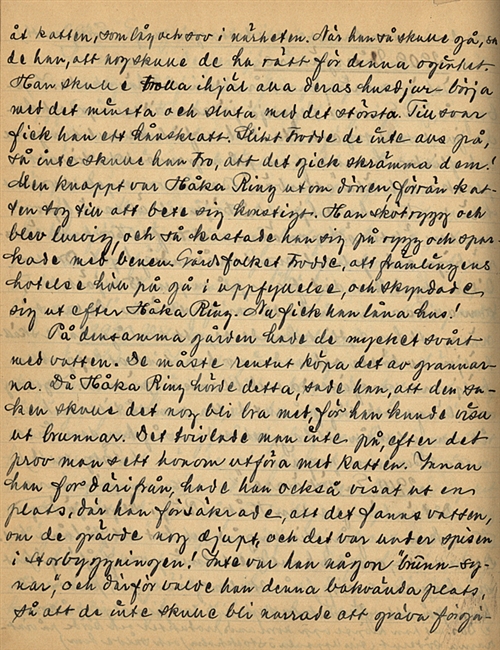 åt katten, som låg och sov i närheten. När han så skulle gå, sa
de han, att nog skulle de ha rätt för denna ogінhet.
Han skulle trolla ihjäl alla deras husdjur - börja
med det minsta och sluta med det största. Till svar
fick han ett hånskratt. Slikt trodde de inte alls på,
så inte skulle han tro, att det gick skrämma dem!
Men knappt var Håka Ring utom dörren, förrän kat-
ten tog till att bete sig konstigt. Han sköt rygg och
blev lurvig, och så kastade han sig på rygg och spar
kade med benen. Gårdsfolket trodde, att främlingens
hotelse höll på gå i uppfyllelse, och skyndade
sig ut efter Håka Ring. Nu fick han låna hus!
På densamma gården hade de mycket svårt
med vatten. De måste rentut köpa det av grannar-
na. Då Håka Ring hörde detta, sade han, att den sa-
ken skulle det nog bli bra med, för han kunde visa
ut brunnar. Det tvivlade man inte på, efter det
prov man sett honom utföra med katten. Innan
han for därifrån, hade han också visat ut en
plats, där han försäkrade, att det fanns vatten,
om de grävde nog djupt, och det var under spisen
i storbyggningen! Inte var han någon "brunn-sy-
nar", och därför valde han denna bakvända plats,
så att de inte skulle bli narrade att gräva förgä-